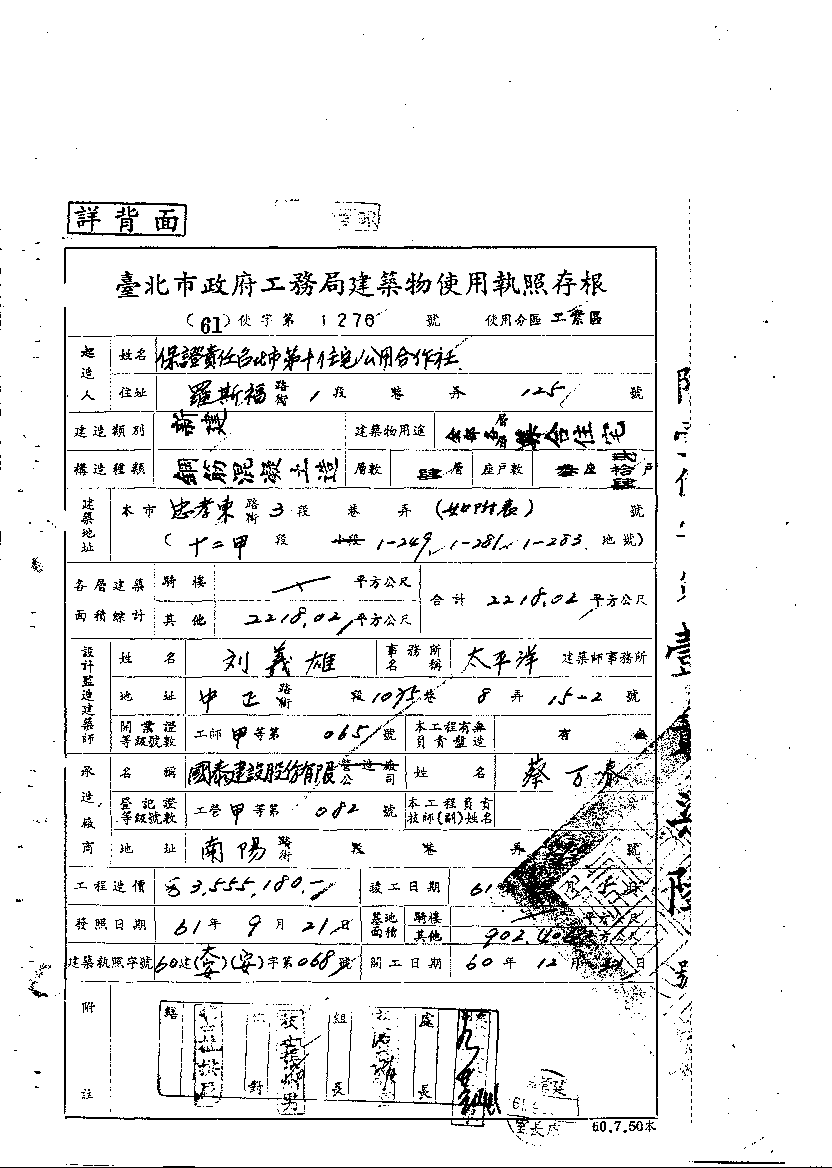 詳背面
臺北市政府工務局建築物使用執照存根
(61)使字第 1276 號 使用分區 工業區
起造人 姓名 保證責任台北市第十住宅公用合作社
住址 羅斯福 路街 1 段 巷 弄 125 號
建造類別 新建 建築物用途 全部各層 集合住宅
構造種類 鋼筋混凝土造 層數 肆 層 座戶數 座 戶
建築地址 本市 忠孝東 路街 3 段 巷 弄 (如附表) 號
( 十二甲 段 小段 1-249, 1-281, 1-283 地號)
各層建築面積綜計 騎樓 平方公尺 合計 2218.02 平方公尺
其他 2218.02 平方公尺
設計監造建築師 姓名 刘義雄 事務所名稱 太平洋 建築師事務所
地址 中正 路街 段 1035 巷 8 弄 15-2 號
開業證等級號數 工師 甲 等第 065 號 本工程有無負責監造 有 無
承造廠商 名稱 國泰建設股份有限 營造廠公司 姓名 蔡万春
登記證等級號數 工營 甲 等第 082 號 本工程負責技師(副)姓名
地址 南陽 路街 段 巷 弄 號
工程造價 3,555,180.- 竣工日期 61 年 月 日
發照日期 61 年 9 月 21 日 基地面積 騎樓 平方公尺
其他 902.40 平方公尺
建築執照字號 60建(大安)(安)字第068號 開工日期 60 年 12 月 日
附註
組長
處長
60.7.50本